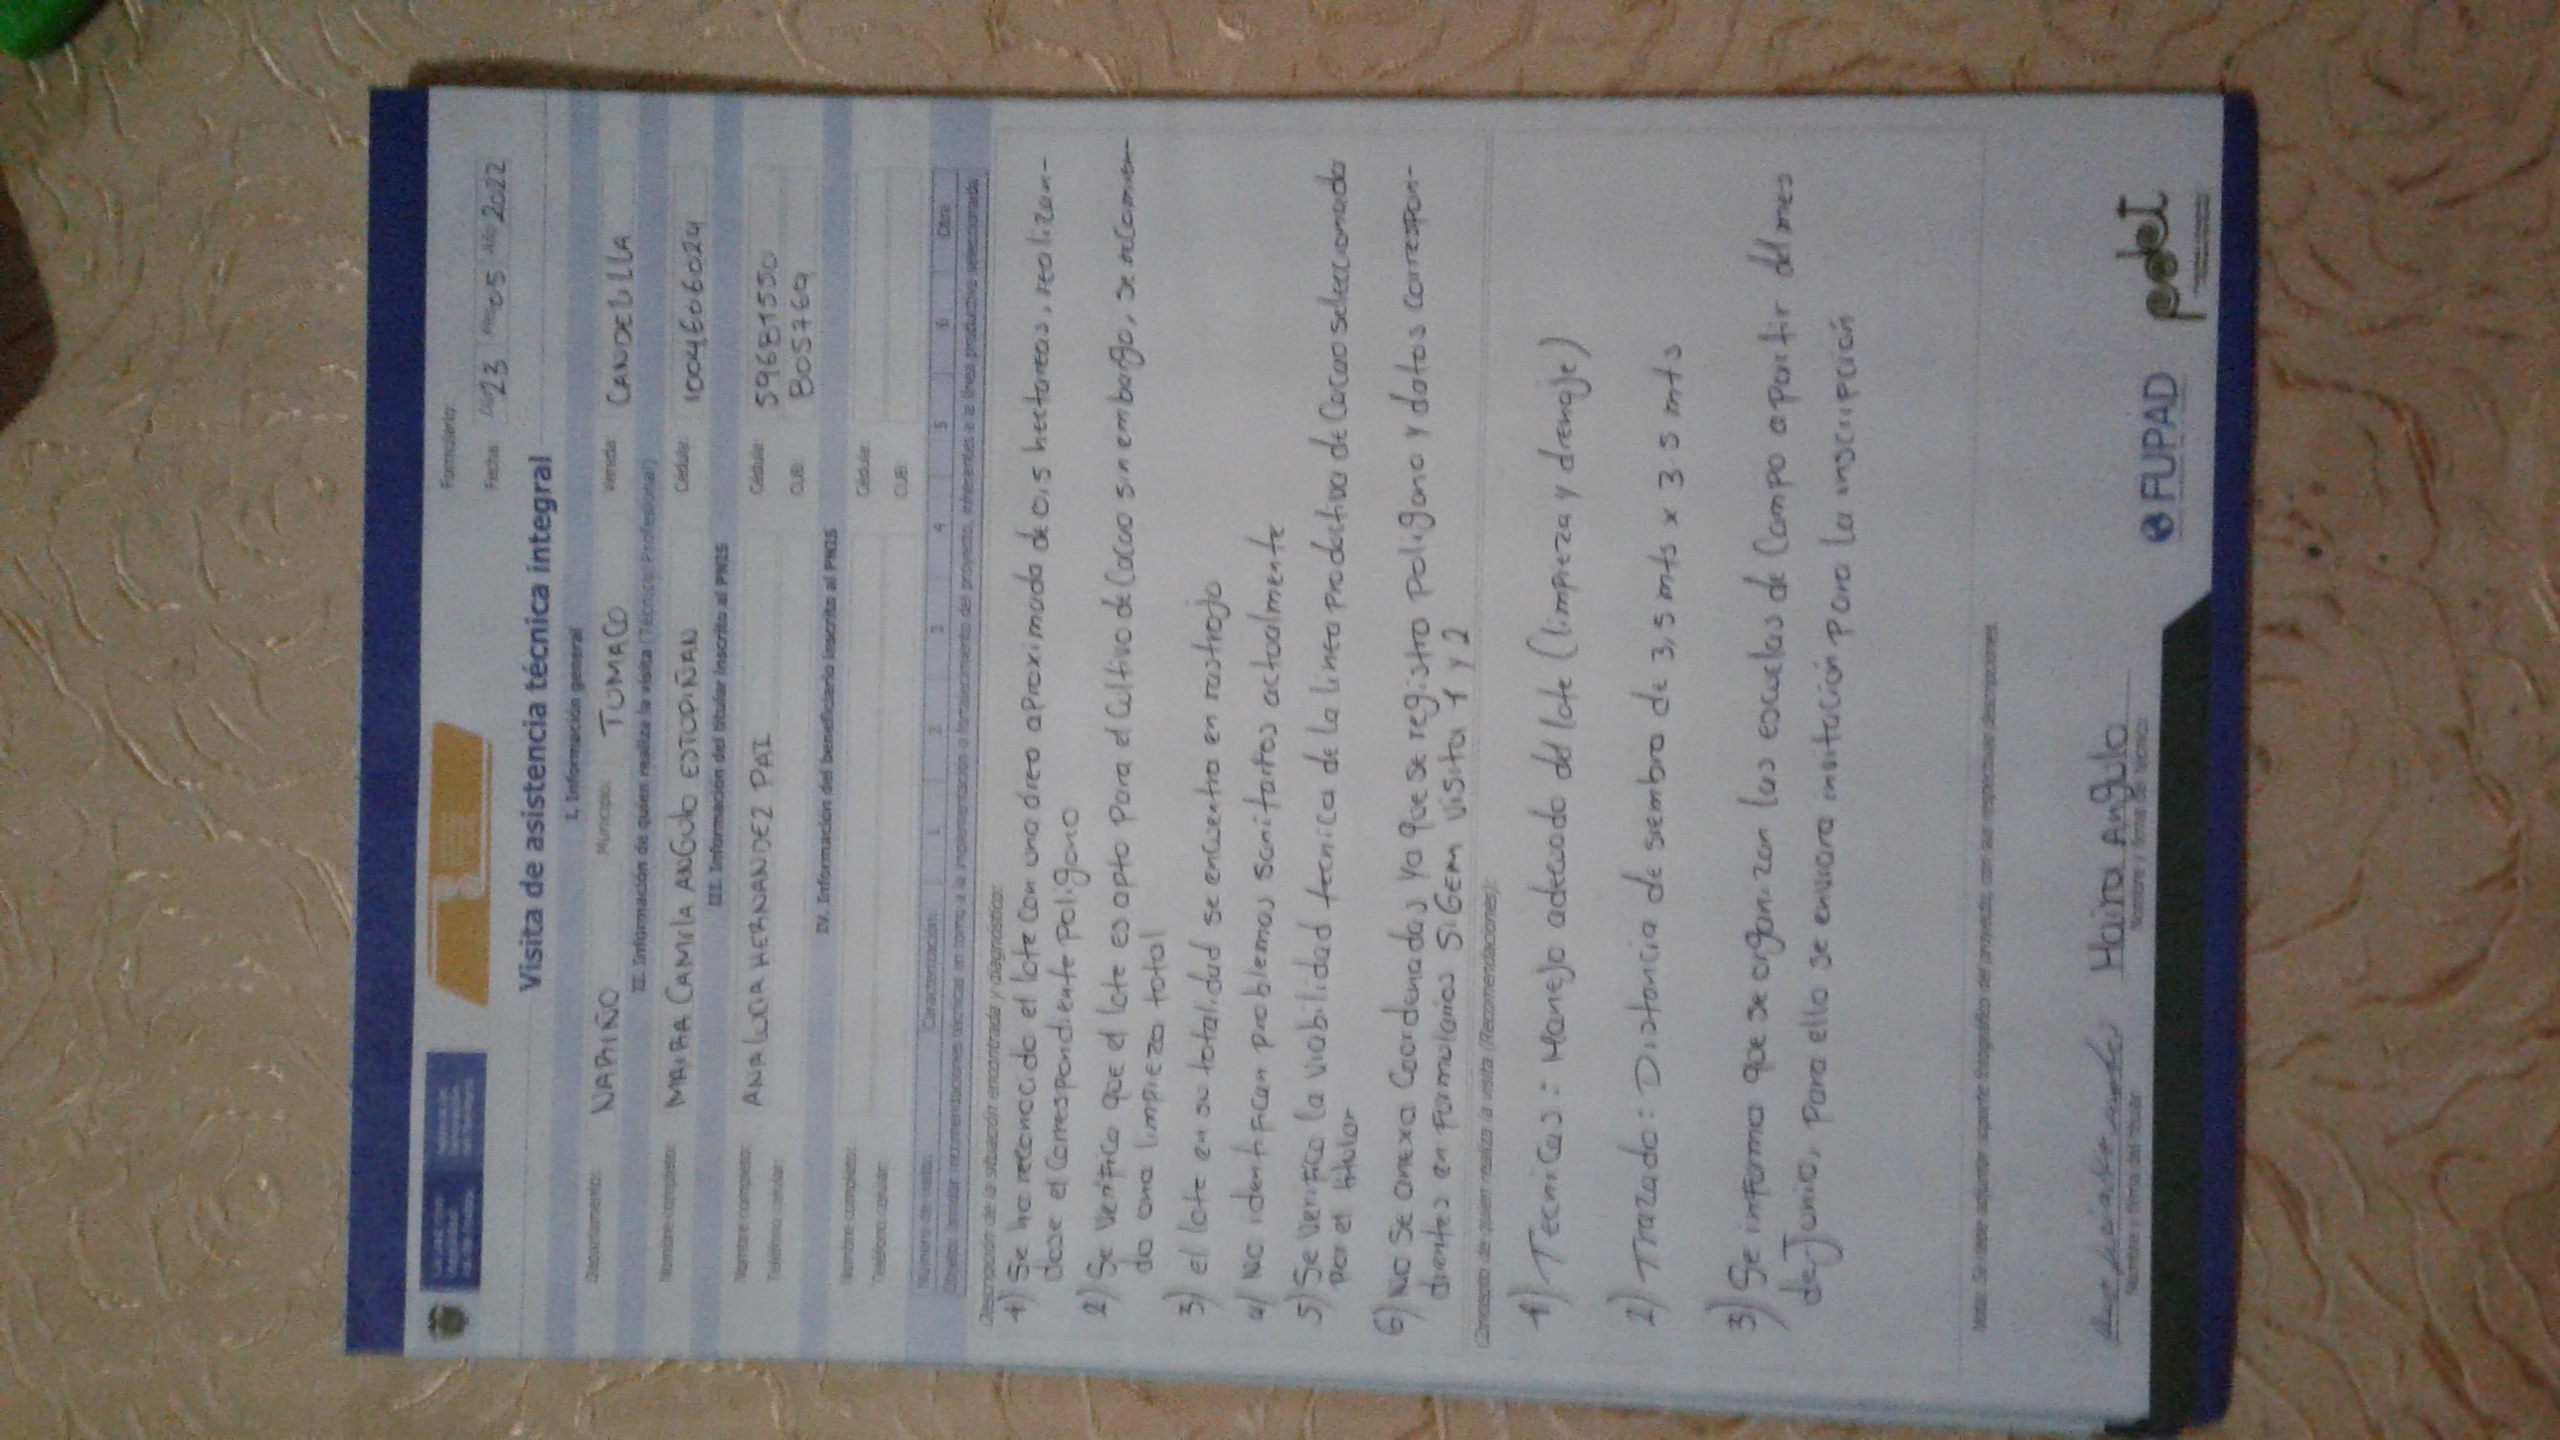 Formulario:
Fecha: Día 23 Mes 05 Año 2022
Visita de asistencia técnica integral
I. Información general
Departamento: NARIÑO Municipio: TUMACO Vereda: CANDELILLA
II. Información de quien realiza la visita (Técnico: Profesional)
Nombre completo: MAIRA CAMILA ANGULO ESTUPIÑAN Cédula: 1004606024
III. Información del titular inscrito al PNIS
Nombre completo: ANA LUCIA HERNANDEZ PAI Cédula: 59681550
Teléfono celular: CUB: 805769
IV. Información del beneficiario inscrito al PNIS
Nombre completo: Cédula:
Teléfono celular: CUB:
Número de visita: Caracterización: 1 2 3 4 5 6 Otra
Objeto: brindar recomendaciones técnicas en torno a la implementación o fortalecimiento del proyecto, inherentes a la línea productiva seleccionada
Descripción de la situación encontrada y diagnóstico:
1) Se ha reconocido el lote con una área aproximada de 0.5 hectareas, realizan-
dose el correspondiente poligono
2) Se verifica que el lote es apto para el cultivo de cacao sin embargo, se recomien-
da una limpieza total
3) el lote en su totalidad se encuentra en rastrojo
4) No identifican problemas sanitarios actualmente
5) Se verifica la viabilidad tecnica de la linea productiva de cacao seleccionada
por el titular
6) No se anexa coordenadas ya que se registro poligono y datos correspon-
dientes en formularios SIGEM visita 1 y 2
Concepto de quien realiza la visita (Recomendaciones):
1) Tecnicas: Manejo adecuado del lote (limpieza y drenaje)
2) Trazado: Distancia de siembra de 3,5 mts x 3.5 mts
3) Se informa que se organizan las escuelas de campo a partir del mes
de Junio, para ello se enviara invitación para la inscripción
Nota: Se debe adjuntar soporte fotográfico del proyecto con sus respectivas descripciones
Maira Angulo
Nombre y firma del titular Nombre y firma del técnico
FUPAD pdet